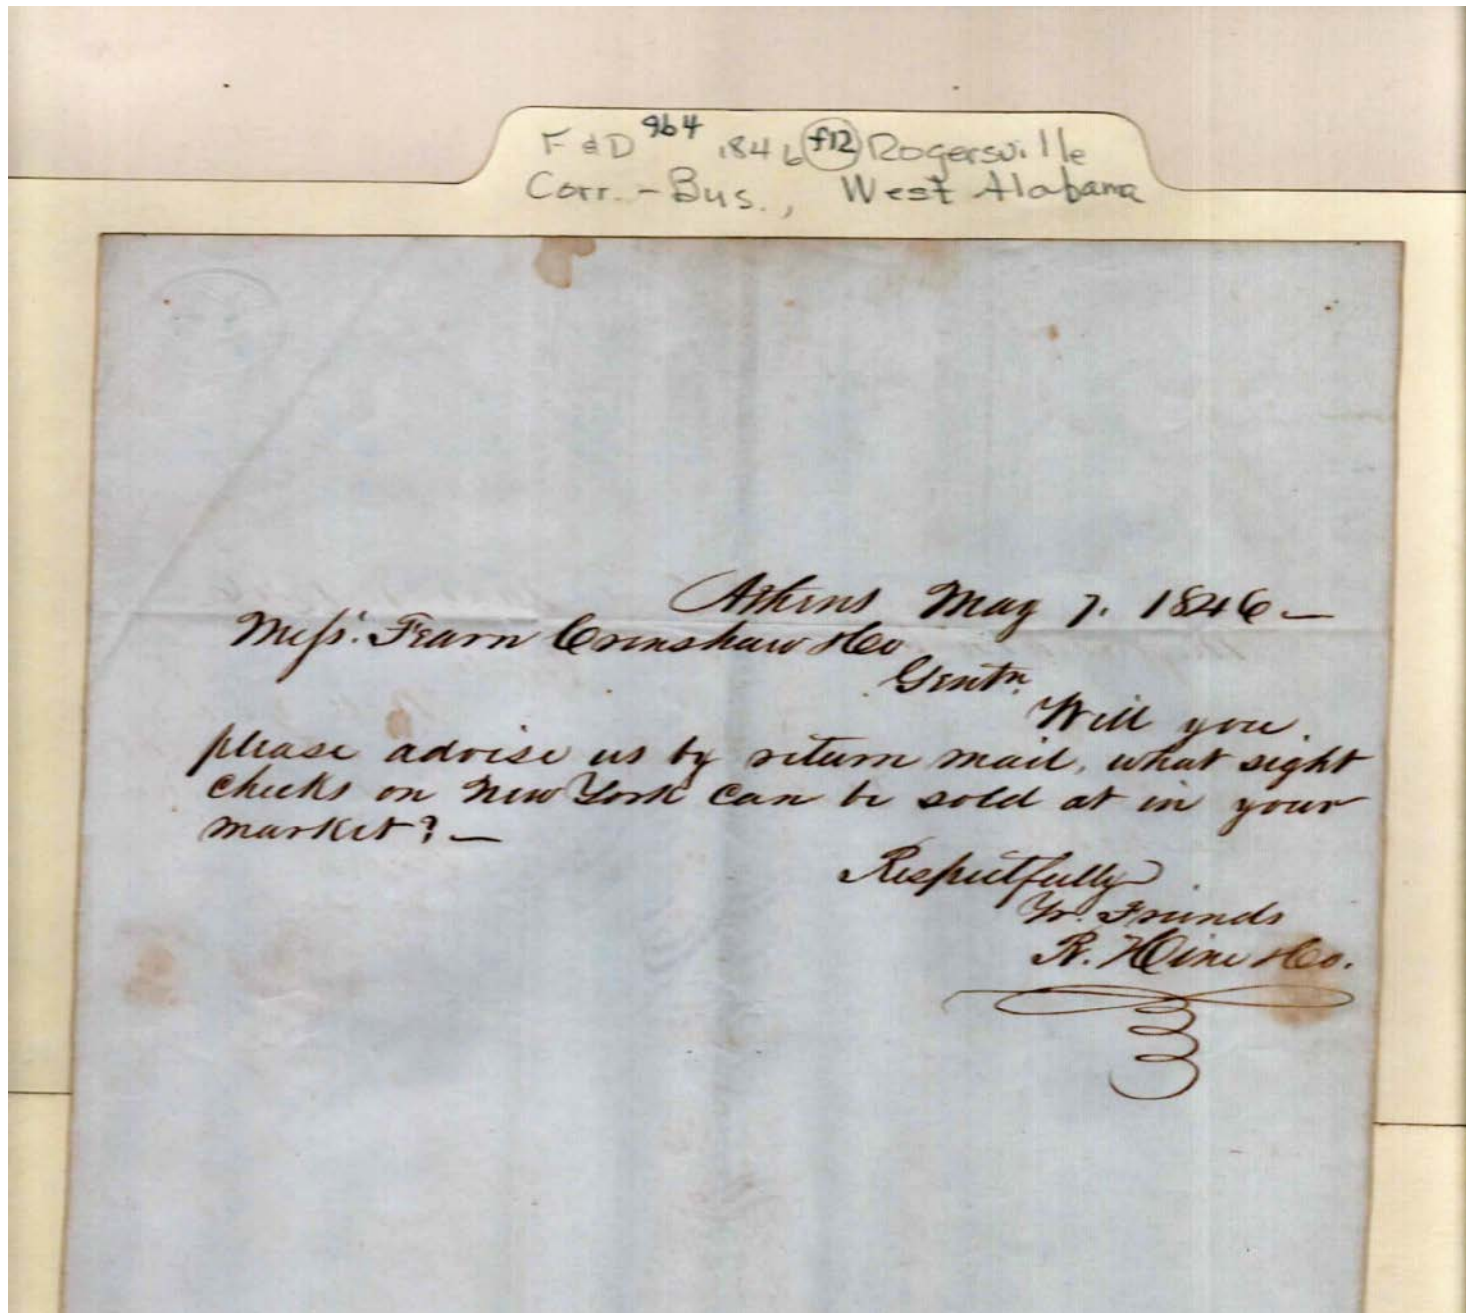 F & D 9b4 1846 f12 Rogersville
Corr. - Bus., West Alabama
Athens May 7. 1846 —
Messrs. Fearn Crenshaw & Co
Gentn.
Will you
please advise us by return mail, what sight
checks on New York can be sold at in your
market? —
Respectfully
Yr. Friends
R. Hine & Co.